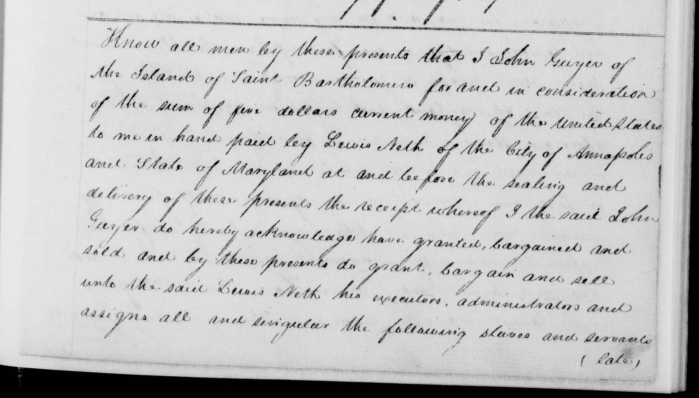 Know all men by these presents that I John Guyer of
the Island of Saint Bartholomew for and in consideration
of the sum of five dollars current money of the United States
to me in hand paid by Lewis Neth of the City of Annapolis
and State of Maryland at and before the sealing and
delivery of these presents the receipt whereof I the said John
Guyer do hereby acknowledge have granted, bargained and
sold and by these presents do grant, bargain and sell
unto the said Lewis Neth his executors, administrators and
assigns all and singular the following slaves and servants
(late)